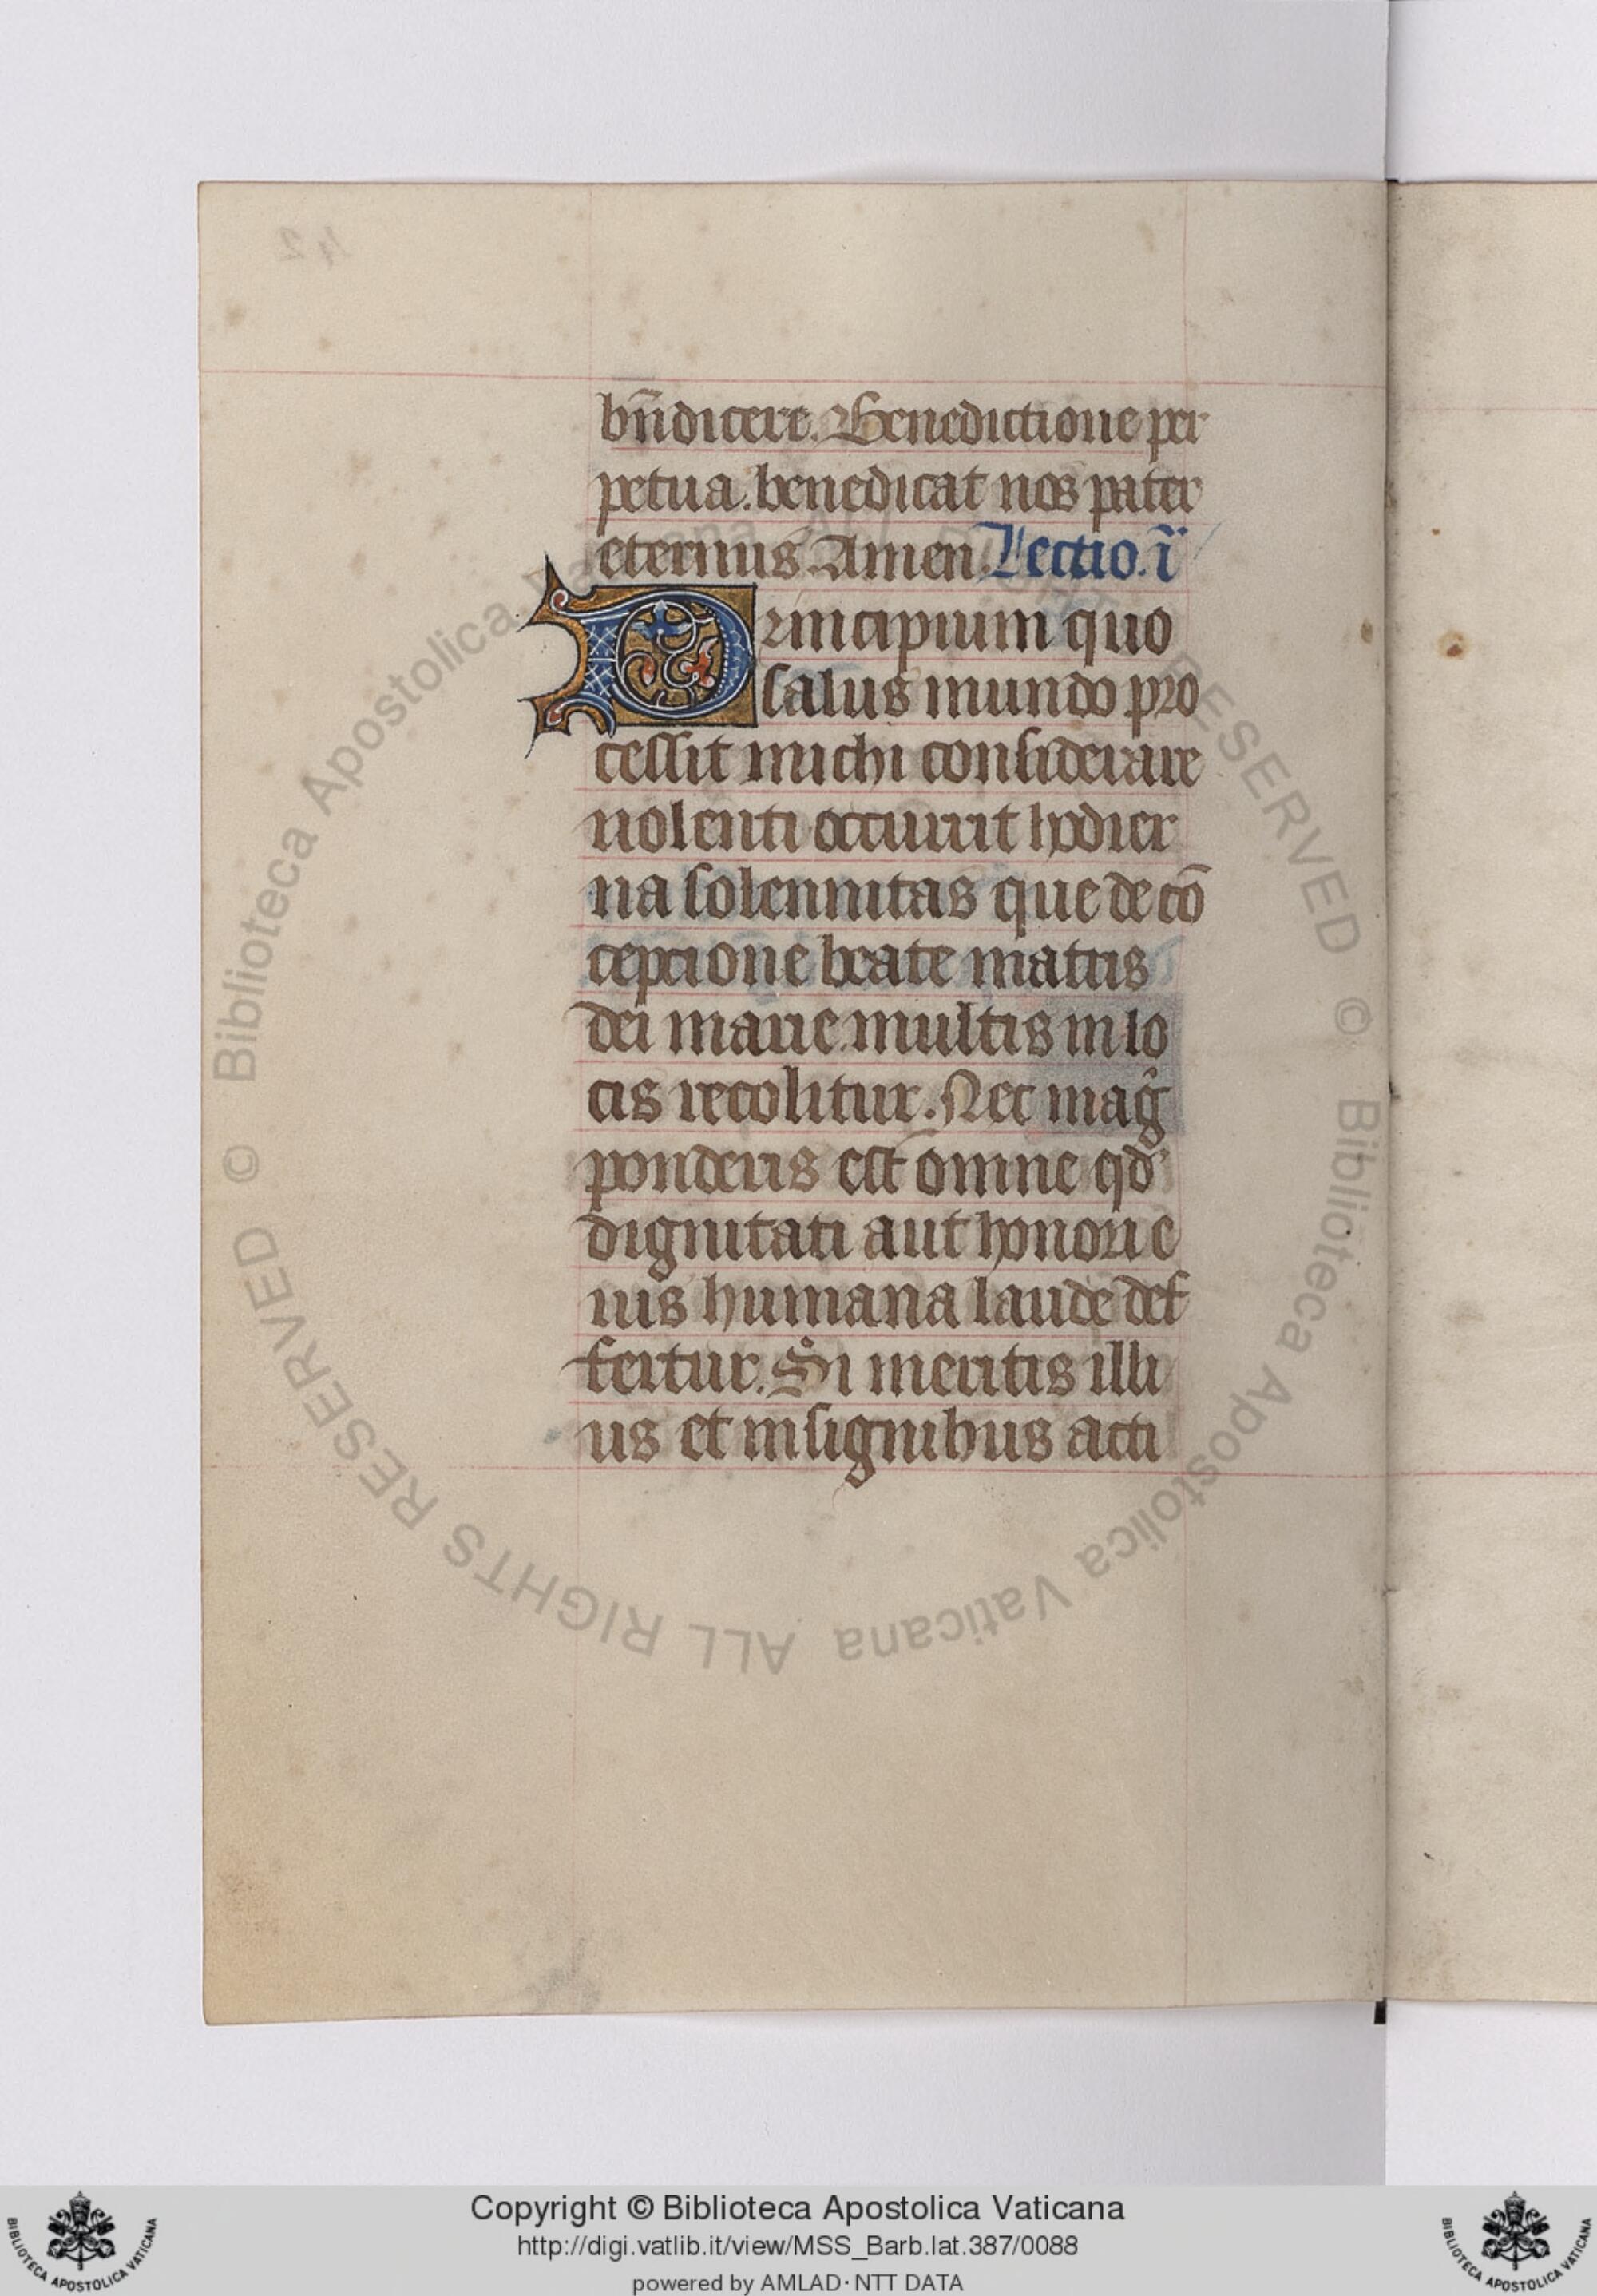 bn̄dicere. Benedictione per
petua. benedicat nos pater
eternus. Amen. Lectio. i
Principium quo
salus mundo pro
cessit michi considerare
uolenti occurrit hodier
na solennitas que de cō
cepcione beate matris
dei marie. multis in lo
cis recolitur. Nec mag̃
ponderis est omne qd'
dignitati aut honori e
ius humana laude def
fertur. Si meritis illi
us et insignibus acti
42
Copyright © Biblioteca Apostolica Vaticana
http://digi.vatlib.it/view/MSS_Barb.lat.387/0088
powered by AMLAD · NTT DATA
BIBLIOTECA APOSTOLICA VATICANA
BIBLIOTECA APOSTOLICA VATICANA
© Biblioteca Apostolica Vaticana ALL RIGHTS RESERVED
© Biblioteca Apostolica Vaticana ALL RIGHTS RESERVED